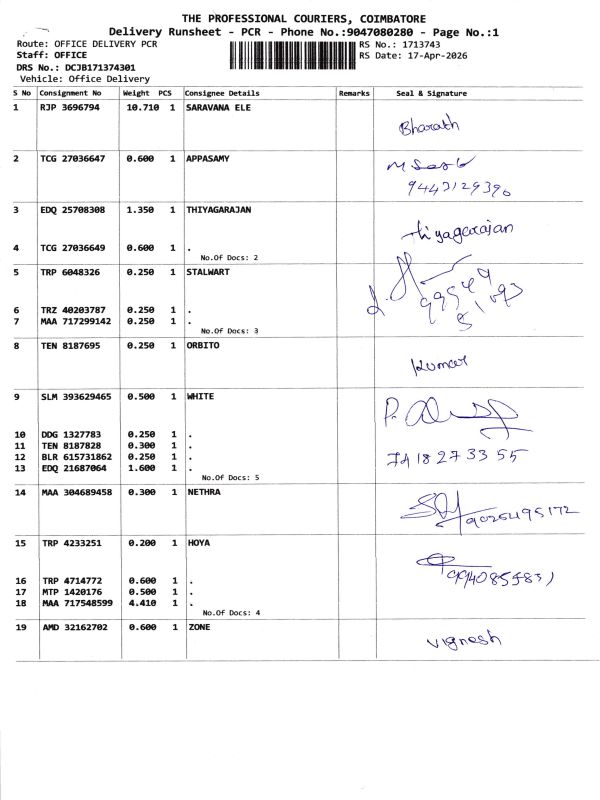 THE PROFESSIONAL COURIERS, COIMBATORE
Delivery Runsheet - PCR - Phone No.:9047080280 - Page No.:1
Route: OFFICE DELIVERY PCR RS No.: 1713743
Staff: OFFICE RS Date: 17-Apr-2026
DRS No.: DCJB171374301
Vehicle: Office Delivery
S No Consignment No Weight PCS Consignee Details Remarks Seal & Signature
1 RJP 3696794 10.710 1 SARAVANA ELE
Bharath
2 TCG 27036647 0.600 1 APPASAMY
9442129390
3 EDQ 25708308 1.350 1 THIYAGARAJAN
thiyagarajan
4 TCG 27036649 0.600 1 .
No.Of Docs: 2
5 TRP 6048326 0.250 1 STALWART
6 TRZ 40203787 0.250 1 .
7 MAA 717299142 0.250 1 .
No.Of Docs: 3
8 TEN 8187695 0.250 1 ORBITO
kumar
9 SLM 393629465 0.500 1 WHITE
10 DDG 1327783 0.250 1 .
11 TEN 8187828 0.300 1 .
12 BLR 615731862 0.250 1 .
13 EDQ 21687064 1.600 1 .
No.Of Docs: 5
14 MAA 304689458 0.300 1 NETHRA
9025495172
15 TRP 4233251 0.200 1 HOYA
16 TRP 4714772 0.600 1 .
17 MTP 1420176 0.500 1 .
18 MAA 717548599 4.410 1 .
No.Of Docs: 4
19 AMD 32162702 0.600 1 ZONE
vignesh